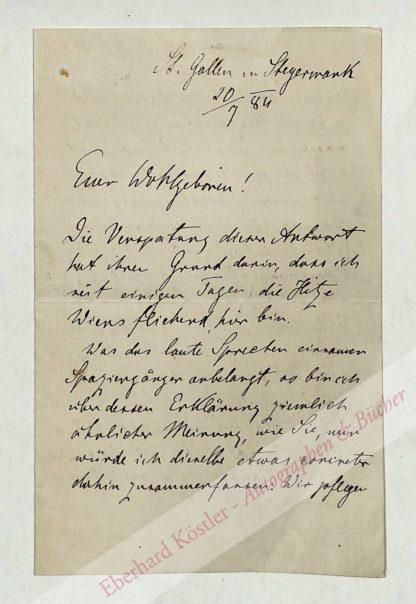 St. Gallen in Steyermark
20/7 84
Euer Wohlgeboren!
Die Verspätung dieser Antwort
hat ihren Grund darin, dass ich
seit einigen Tagen, die Hitze
Wiens fliehend hier bin.
Was das laute Sprechen einsamer
Spaziergänger anbelangt, so bin ich
über dessen Erklärung ziemlich
ähnlicher Meinung, wie Sie, nur
würde ich dieselbe etwas concreter
dahin zusammenfassen: Wir pflegen
Eberhard Köstler - Autographen & Bücher